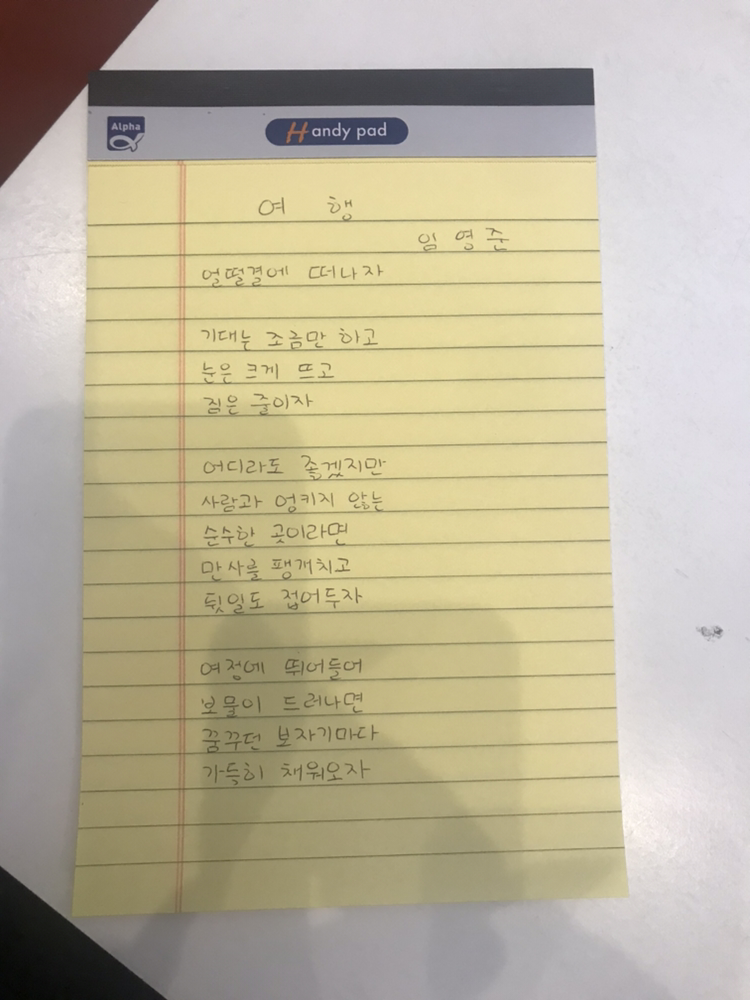 Alpha
Handy pad
여 행
임 영 준
얼떨결에 떠나자
기대는 조금만 하고
눈은 크게 뜨고
짐은 줄이자
어디라도 좋겠지만
사람과 엉키지 않는
순수한 곳이라면
만사를 팽개치고
뒷일도 접어두자
여정에 뛰어들어
보물이 드러나면
꿈꾸던 보자기마다
가득히 채워오자